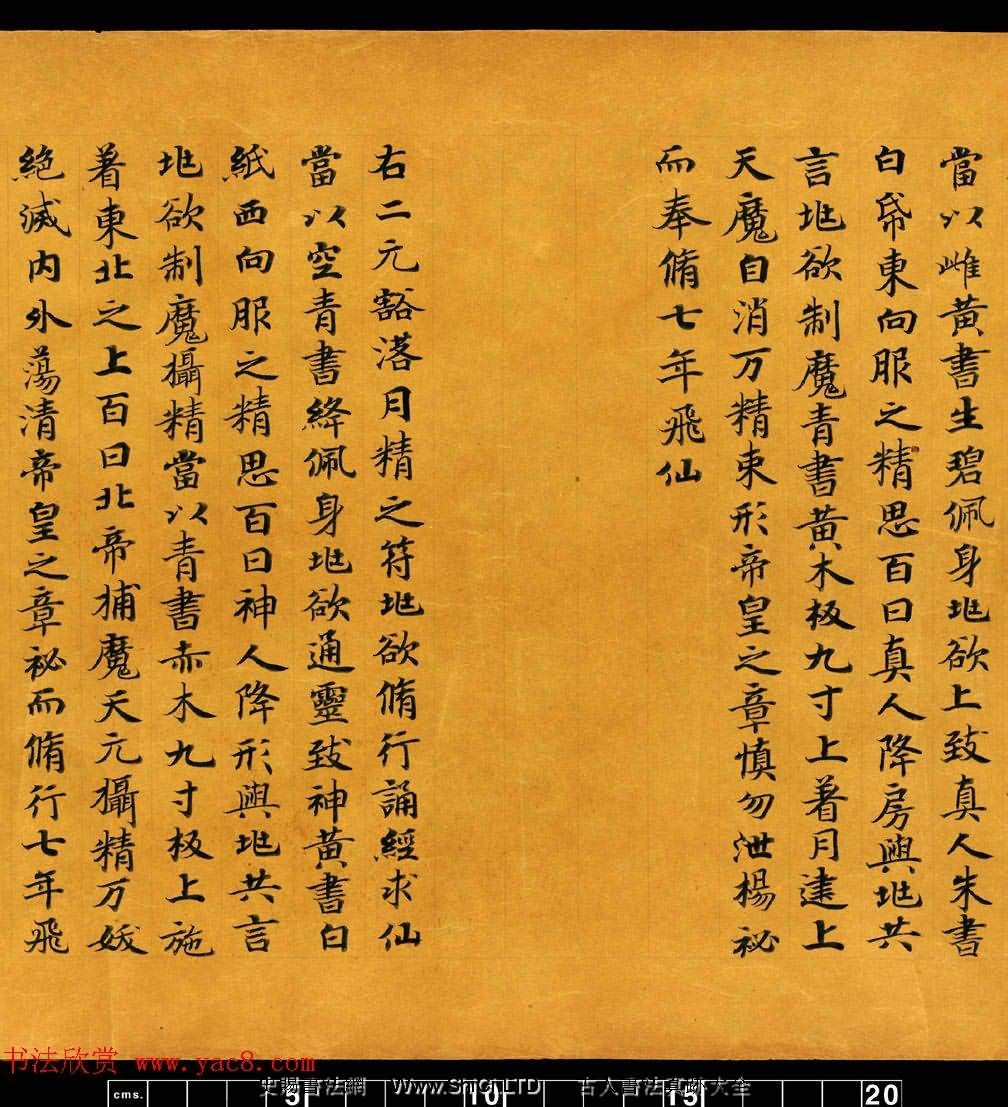 當以雌黃書生碧佩身兆欲上致真人朱書
白帋東向服之精思百日真人降房與兆共
言兆欲制魔青書黃木板九寸上著月建上
天魔自消万精束形帝皇之章慎勿泄楊祕
而奉脩七年飛仙
右二元豁落月精之符兆欲脩行誦經求仙
當以空青書絳佩身兆欲通靈致神黃書白
紙西向服之精思百日神人降形與兆共言
兆欲制魔攝精當以青書赤木九寸板上施
著東北之上百日北帝捕魔天元攝精万妖
絕滅内外蕩清帝皇之章祕而脩行七年飛
书法欣赏 www.yac8.com
cms. 5 10 15 20
史賜書法網 Www.ShiCi.LTD 古人書法真跡大全